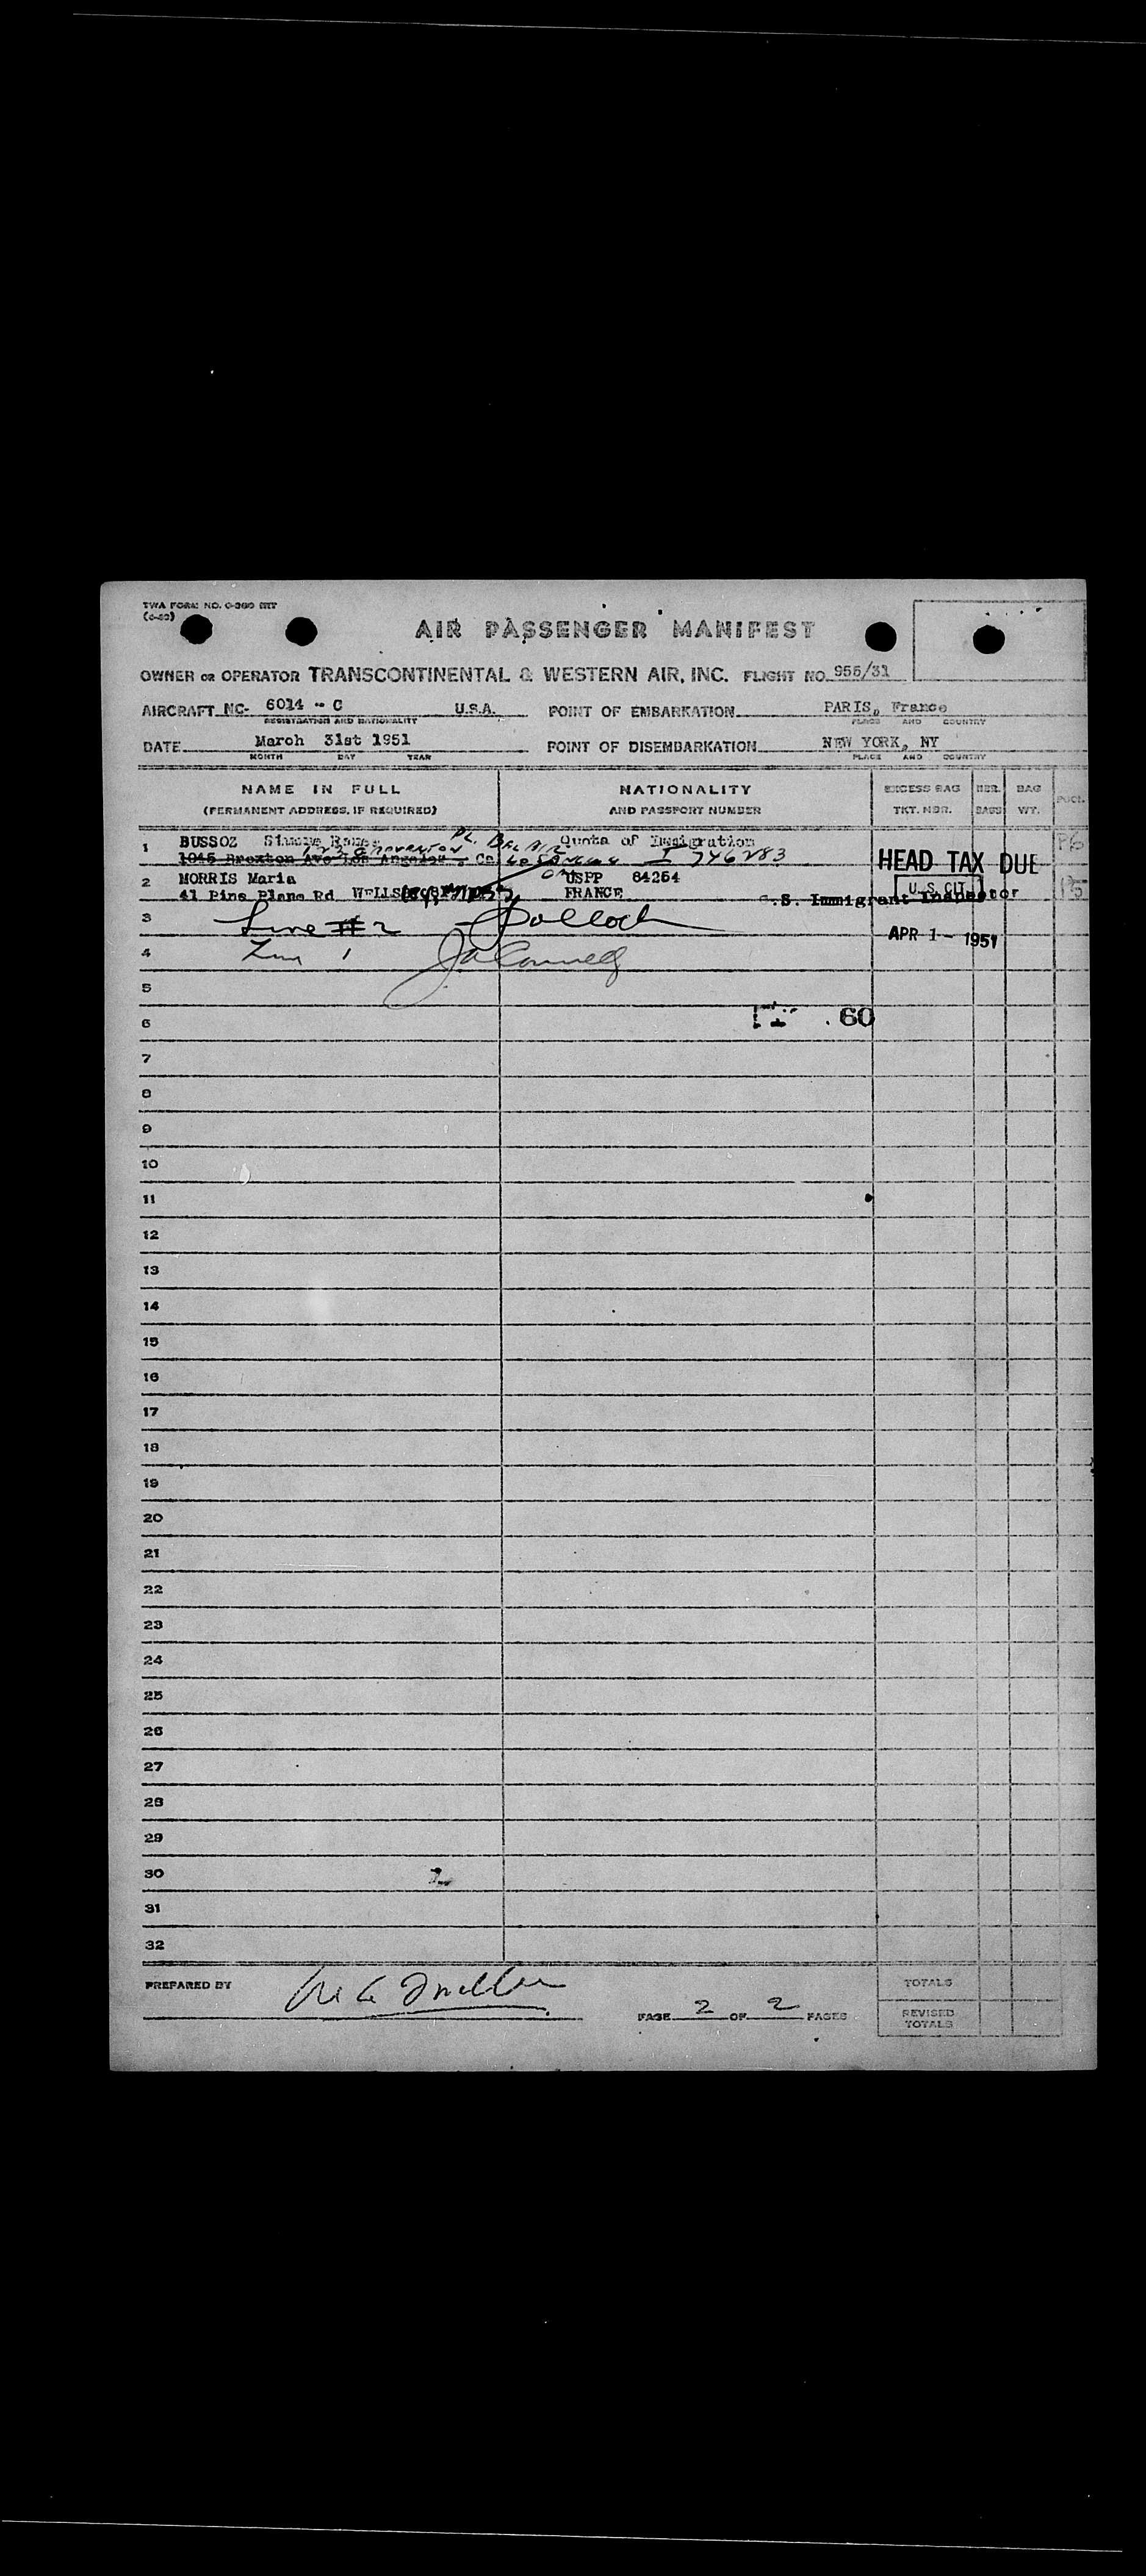 TWA FORM NO.
AIR PASSENGER MANIFEST
OWNER OR OPERATOR TRANSCONTINENTAL & WESTERN AIR, INC. FLIGHT NO. 955/31
AIRCRAFT NC- 6014 - C U.S.A. POINT OF EMBARKATION PARIS, France
REGISTRATION AND NATIONALITY PLACE AND COUNTRY
DATE March 31st 1951 POINT OF DISEMBARKATION NEW YORK, NY
MONTH DAY YEAR PLACE AND COUNTRY
NAME IN FULL NATIONALITY EXCESS BAG NBR. BAG
(PERMANENT ADDRESS, IF REQUIRED) AND PASSPORT NUMBER TKT. NBR. BAGS WT.
1 BUSSOZ Simone Quota of Immigration
1045 Broxton Ave Los Angeles Ca I 746283
HEAD TAX DUE
2 MORRIS Maria USPP 84264
41 Pine Plane Rd WELLS FRANCE
U.S. CIT
U.S. Immigrant Inspector
3 Line #2 Pollock
APR 1 - 1951
4 Line 1
5
6 60
7
8
9
10
11
12
13
14
15
16
17
18
19
20
21
22
23
24
25
26
27
28
29
30
31
32
PREPARED BY
TOTALS
PAGE 2 OF 2 PAGES
REVISED TOTALS